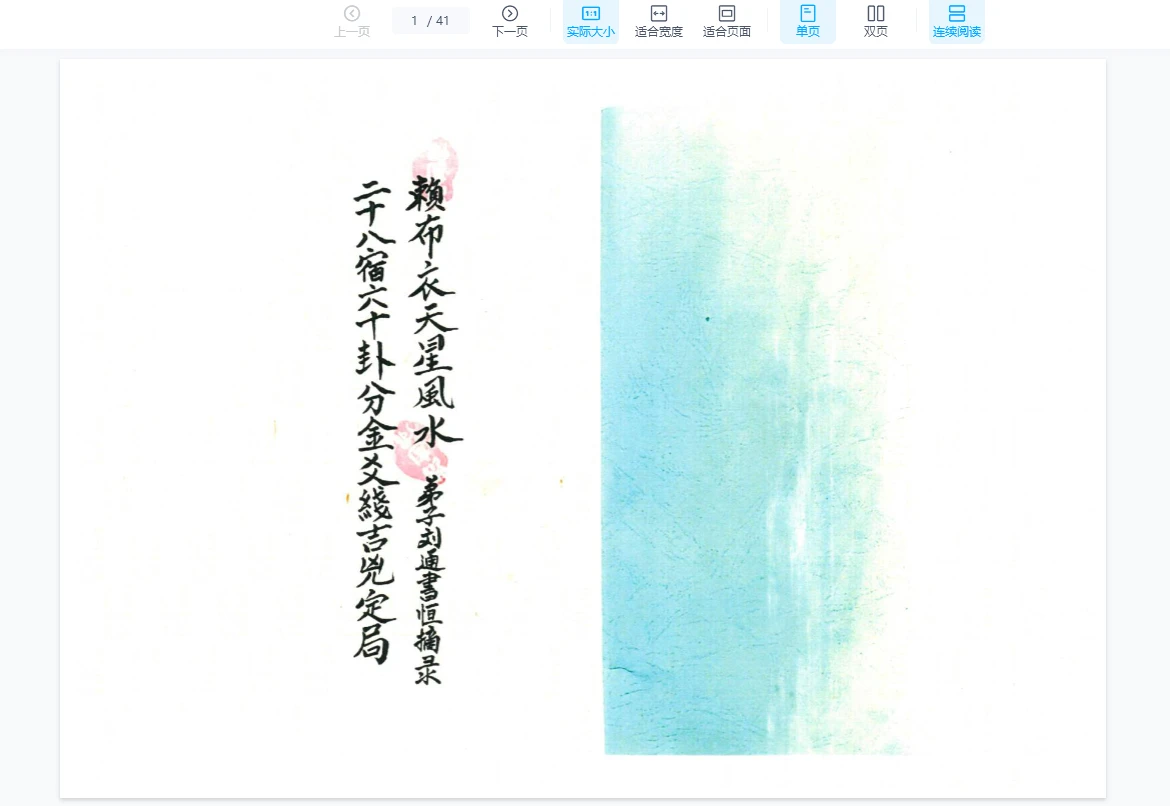 上一页
1 / 41
下一页
实际大小
适合宽度
适合页面
单页
双页
连续阅读
賴布衣天星風水 弟子刘通書恒摘录
二十八宿六十卦分金爻綫吉兇定局